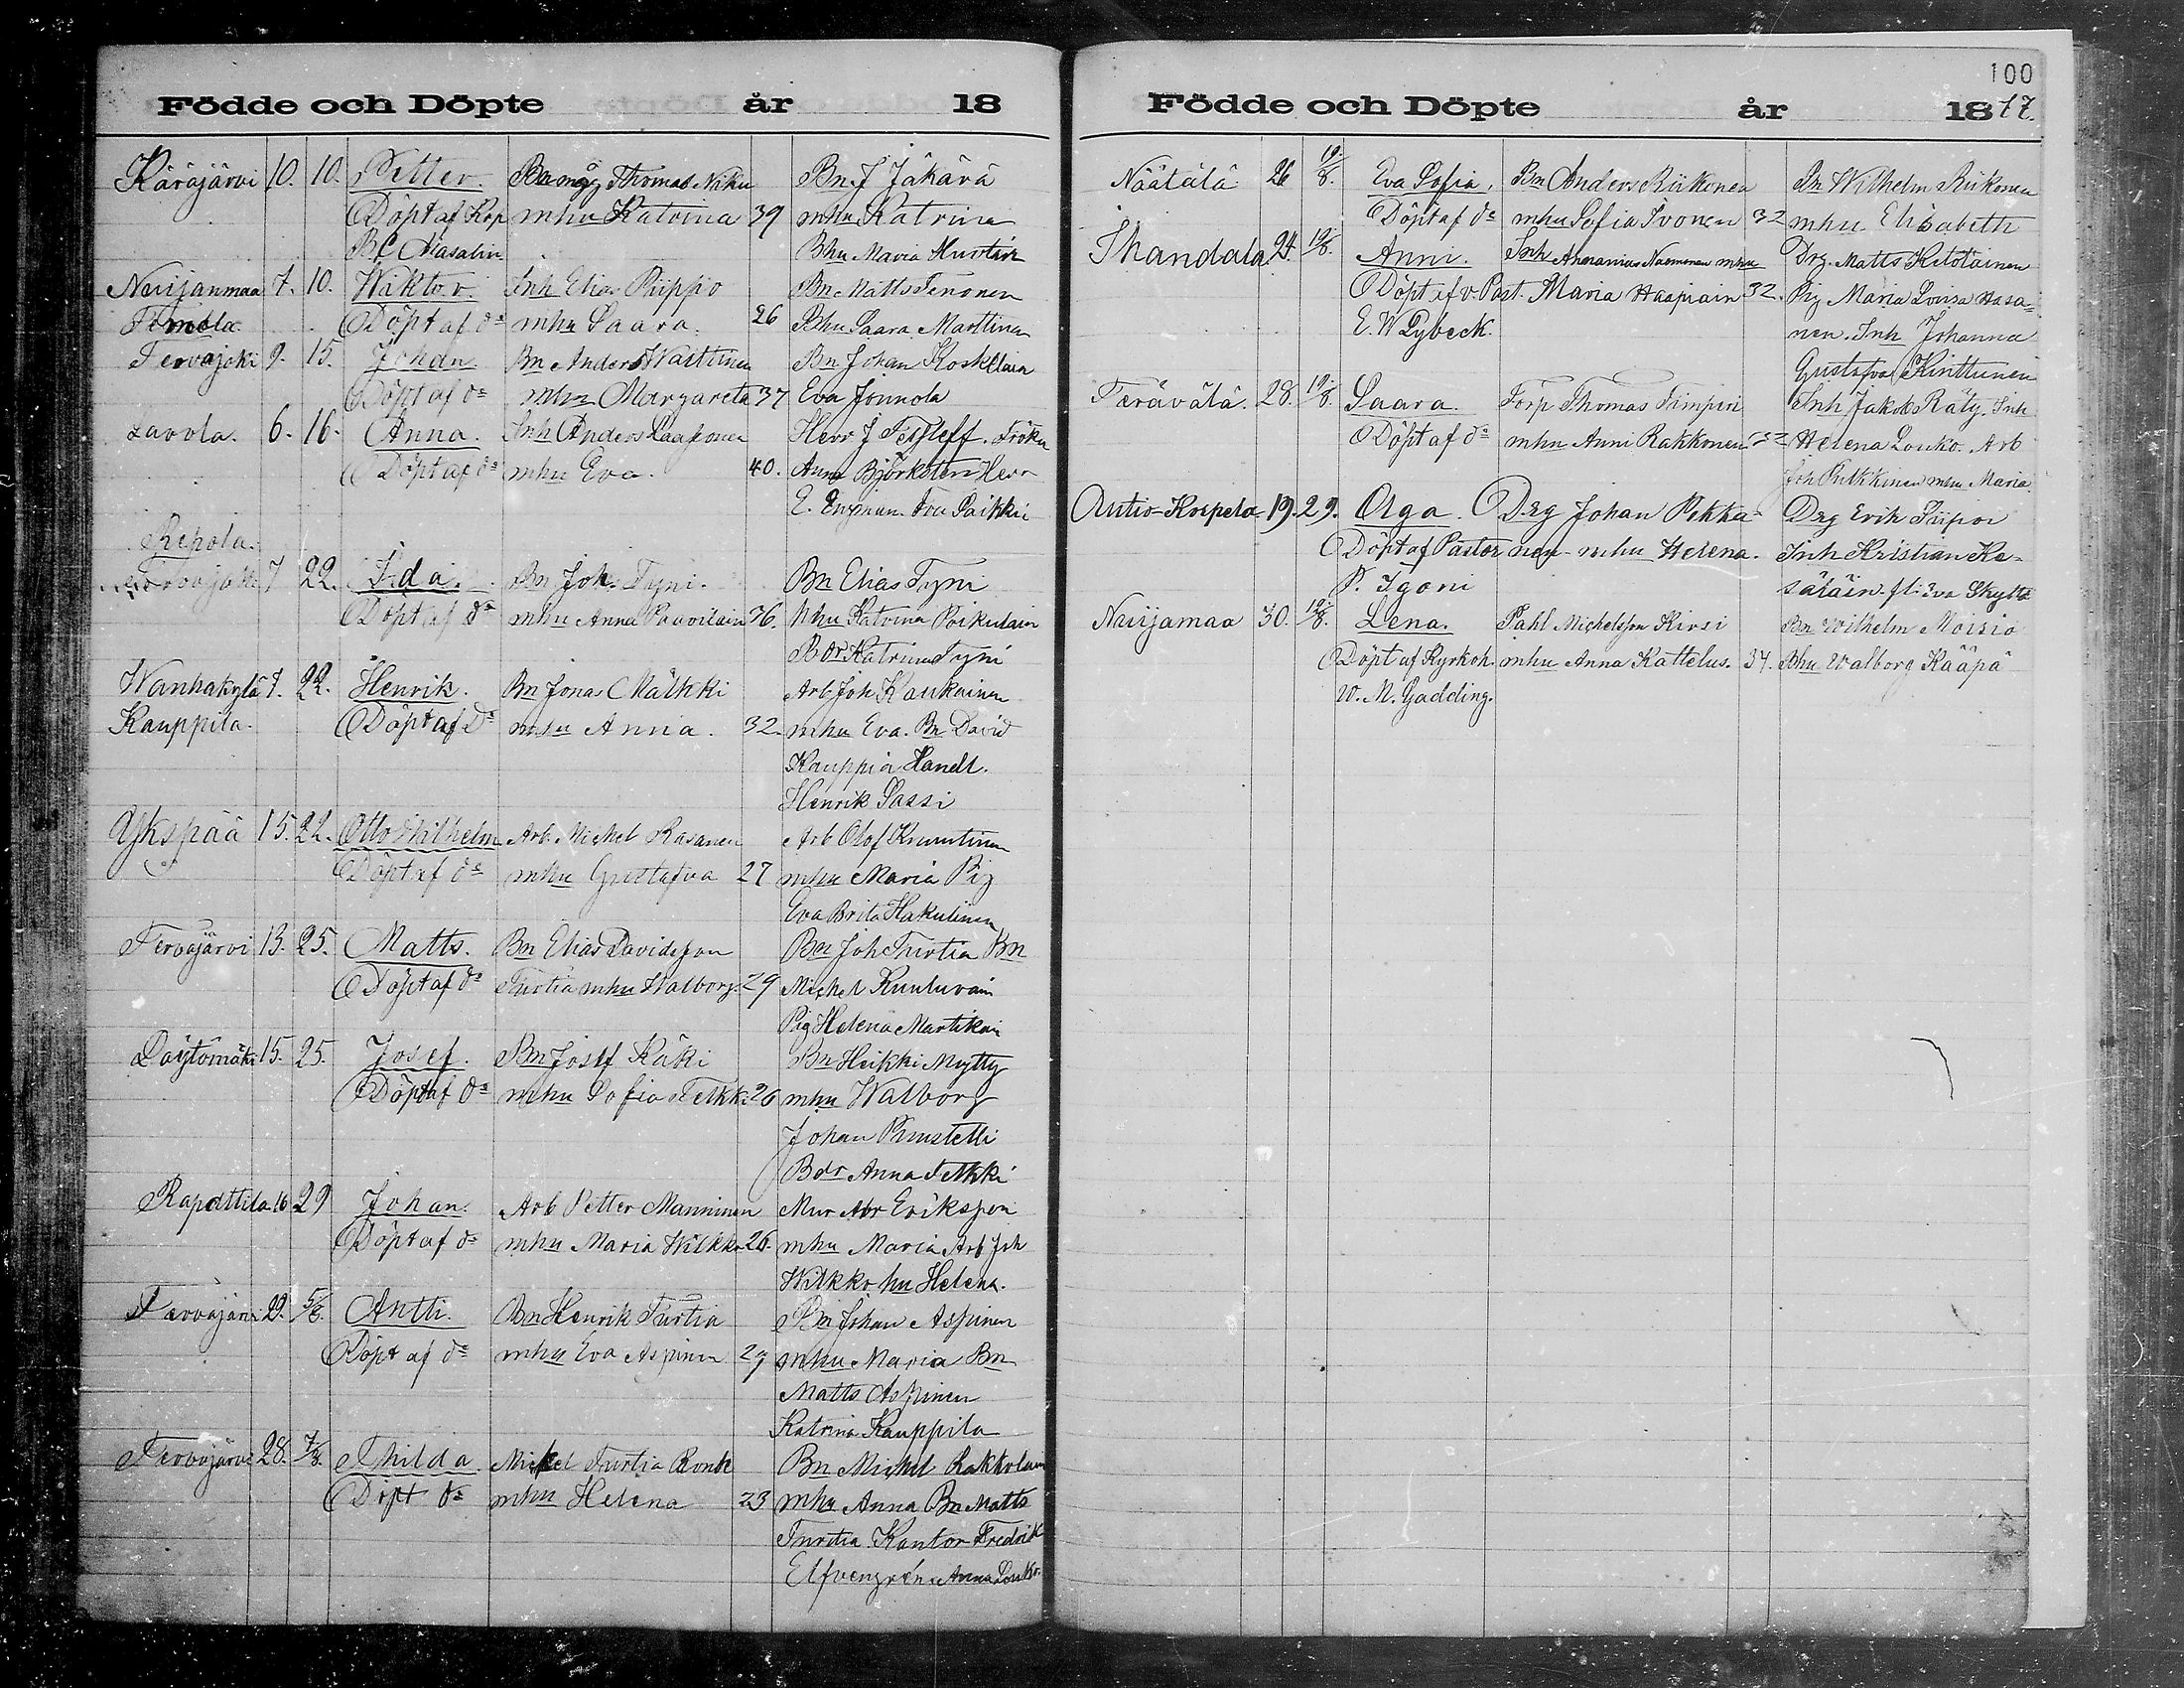 Födde och Döpte år 18
Käräjärvi 10. 10. Petter. Thomas Niku Bn J Jäkärä
Döpt af Kap mhu Katrina 39 mhu Katrina
B C Masalin Bhu Maria Hurtin
Nuijanmaa 7. 10. Wiktor. Inh Elias Piippo Bn Matts Tenonen
Döpt af do mhu Saara. 26 Bhu Saara Marttinen
Tervajoki 9. 15. Johan. Bn Anders Waittinen Bn Johan Kosklain
Döpt af do mhu Margareta 37 Eva Jonnola
Lavola. 6. 16. Anna. Inh Anders Laaponen Herr J Tesleff. Fröken
Döpt af do mhu Eva. 40. Anna Björksten Herr
E. Engman. Fru Paikki
Repola.
Tervajoki 7 22. Ida. Bn Joh. Tyni. Bn Elias Tyni
Döpt af do mhu Anna Paavilain 36. Nhu Katrina Poikulain
Bdr Katrina Tyni
Wanhakylä 7. 22. Henrik. Bn Jonas Mälkki Arb Joh Kaukainen
Kauppila. Döpt af do mhu Anna. 32. mhu Eva. Bn David
Kauppia Handl.
Henrik Sassi
Ykspää 15. 22. Otto Wilhelm Arb. Michel Rasanen Arb Olof Kruutinen
Döpt af do mhu Gustafva 27 mhu Maria Pig
Eva Brita Hakulinen
Tervajärvi 13. 25. Matts. Bn Elias Davidsson Bn Joh Turtia Bn
Döpt af do Turtia mhu Walborg. 29 Michel Kuuluvain
Pig Helena Martikain
Löytömäki 15. 25. Josef. Bn Josef Käki Bn Heikki Mytty
Döpt af do mhu Sofia Telkki 26 mhu Walborg
Johan Pinustelli
Bdr Anna Telkki
Rapattila 16 29 Johan. Arb Petter Manninen Mur Abr Eriksson
Döpt af do mhu Maria Wilkko 26. mhu Maria Arb Joh
Wilkko hu Helena.
Tervajärvi 29. 5/8. Antti. Bn Henrik Turtia Bn Johan Aspinen
Döpt af do mhu Eva Aspinen 29 mhu Maria Bn
Matts Aspinen
Katrina Kauppila
Tervajärvi 28. 7/8. Thilda Mikel Turtia Bonde Bn Michel Rakkolain
Döpt do mhu Helena 23 mhu Anna Bn Matts
Turtia Kantor Fredrik
Elfvengrén Anna Louko.
100
Födde och Döpte år 1877.
Näätälä 26 19/8. Eva Sofia. Bn Anders Riikonen Bn Wilhelm Riikonen
Döpt af do mhu Sofia Ivonen 32 mhu Elisabeth
Ihandala 24. 19/8. Anni. Inh Ananias Naemanen mhu Drg. Matts Kitolainen
Döpt af v. Past. Maria Haapiain 32. Pig Maria Lovisa Hasa-
E. W Lybeck. nen. Inh Johanna
Gustafva Kinttunen
Terävälä. 28. 19/8. Saara. Torp Thomas Timperi Inh Jakob Räty. Inh
Döpt af do mhu Anni Rakkonen Helena Louko. Arb
Joh Pulkkinen mhu Maria.
Autio-Korpela 19. 29. Olga. Drg Johan Pekka- Drg Erik Siipor
Döpt af Pastor nen mhu Helena. Inh Kristian Ke-
P. Igoni säläin. fl: Eva Skyttä
Nuijamaa 30. 19/8. Lena. Pahl Michelsson Kirsi Bn Wilhelm Moisio
Döpt af Kyrkoh. mhu Anna Kattelus. 34. Bhu Walborg Kääpä
W. N. Gadding.